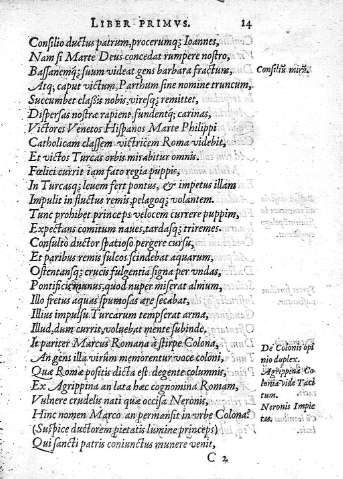 LIBER PRIMVS. 14
Consilio ductus patrum, procerumq; Ioannes,
Nam si Marte Deus concedat rumpere nostro,
Bassanemq; suum videat gens barbara fractum,
Consiliũ mirũ.
Atq; caput victum, Parthum sine nomine truncum,
Succumbet classis nobis, viresq; remittet,
Dispersas nostræ rapient, fundentq; carinas,
Victores Venetos Hispanos Marte Philippi
Catholicam classem victricem Roma videbit,
Et victos Turcas orbis mirabitur omnis.
Fœlici currit iam fato regia puppis,
In Turcasq; leuem fert pontus, & impetus illam
Impulit in fluctus remis, pelagoq; volantem.
Tunc prohibet princeps velocem currere puppim,
Expectans comitum naues, tardasq; triremes.
Consultò ductor spatioso pergere cursu,
Et paribus remis sulcos scindebat aquarum,
Ostentansq; crucis fulgentia signa per vndas,
Pontificis munus, quod nuper miserat almum,
Illo fretus aquas spumosas ære secabat,
Illius impulsu Turcarum tempserat arma,
Illud, dum currit, voluebat mente subinde,
It pariter Marcus Romana è stirpe Colona,
De Colonis opi
nio duplex.
An gens illa virûm memorentur voce coloni,
Quæ Romæ positis dicta est degente columnis,
Agrippina Co
lonia vide Taci
tum.
Ex Agrippina an lata hæc cognomina Romam,
Vulnere crudelis nati quæ occisa Neronis,
Neronis Impie
tas.
Hinc nomen Marco an permansit in vrbe Colona?
(Suspice ductorem pietatis lumine princeps)
Qui sancti patris coniunctus munere venit,
C 2